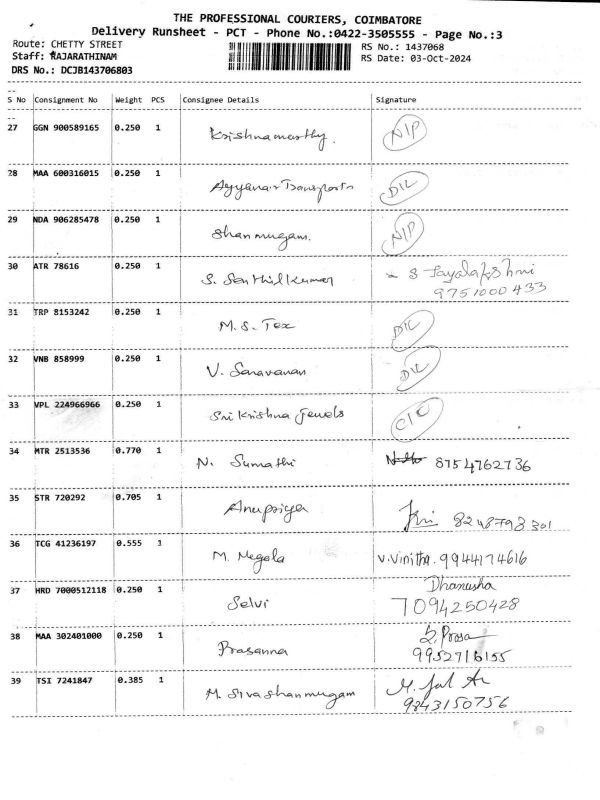 THE PROFESSIONAL COURIERS, COIMBATORE
Delivery Runsheet - PCT - Phone No.:0422-3505555 - Page No.:3
Route: CHETTY STREET RS No.: 1437068
Staff: RAJARATHINAM RS Date: 03-Oct-2024
DRS No.: DCJB143706803
S No Consignment No Weight PCS Consignee Details Signature
27 GGN 900589165 0.250 1 Krishnamoorthy N/P
28 MAA 600316015 0.250 1 Ayyanar Transports D/L
29 NDA 906285478 0.250 1 Shanmugam. N/P
30 ATR 78616 0.250 1 S. Senthilkumar S Jayalakshmi
9751000433
31 TRP 8153242 0.250 1 M.S. Tex D/L
32 VNB 858999 0.250 1 V. Saravanan D/L
33 VPL 224966966 0.250 1 Sri Krishna Jewels C/C
34 MTR 2513536 0.770 1 N. Sumathi 8754762736
35 STR 720292 0.705 1 Anupriya 8248798301
36 TCG 41236197 0.555 1 M. Megala V.Vinitha. 9944174616
37 HRD 7000512118 0.250 1 Selvi Dhanusha
7094250428
38 MAA 302401000 0.250 1 Prasanna
9952716155
39 TSI 7241847 0.385 1 M. Sivashanmugam
9843150756